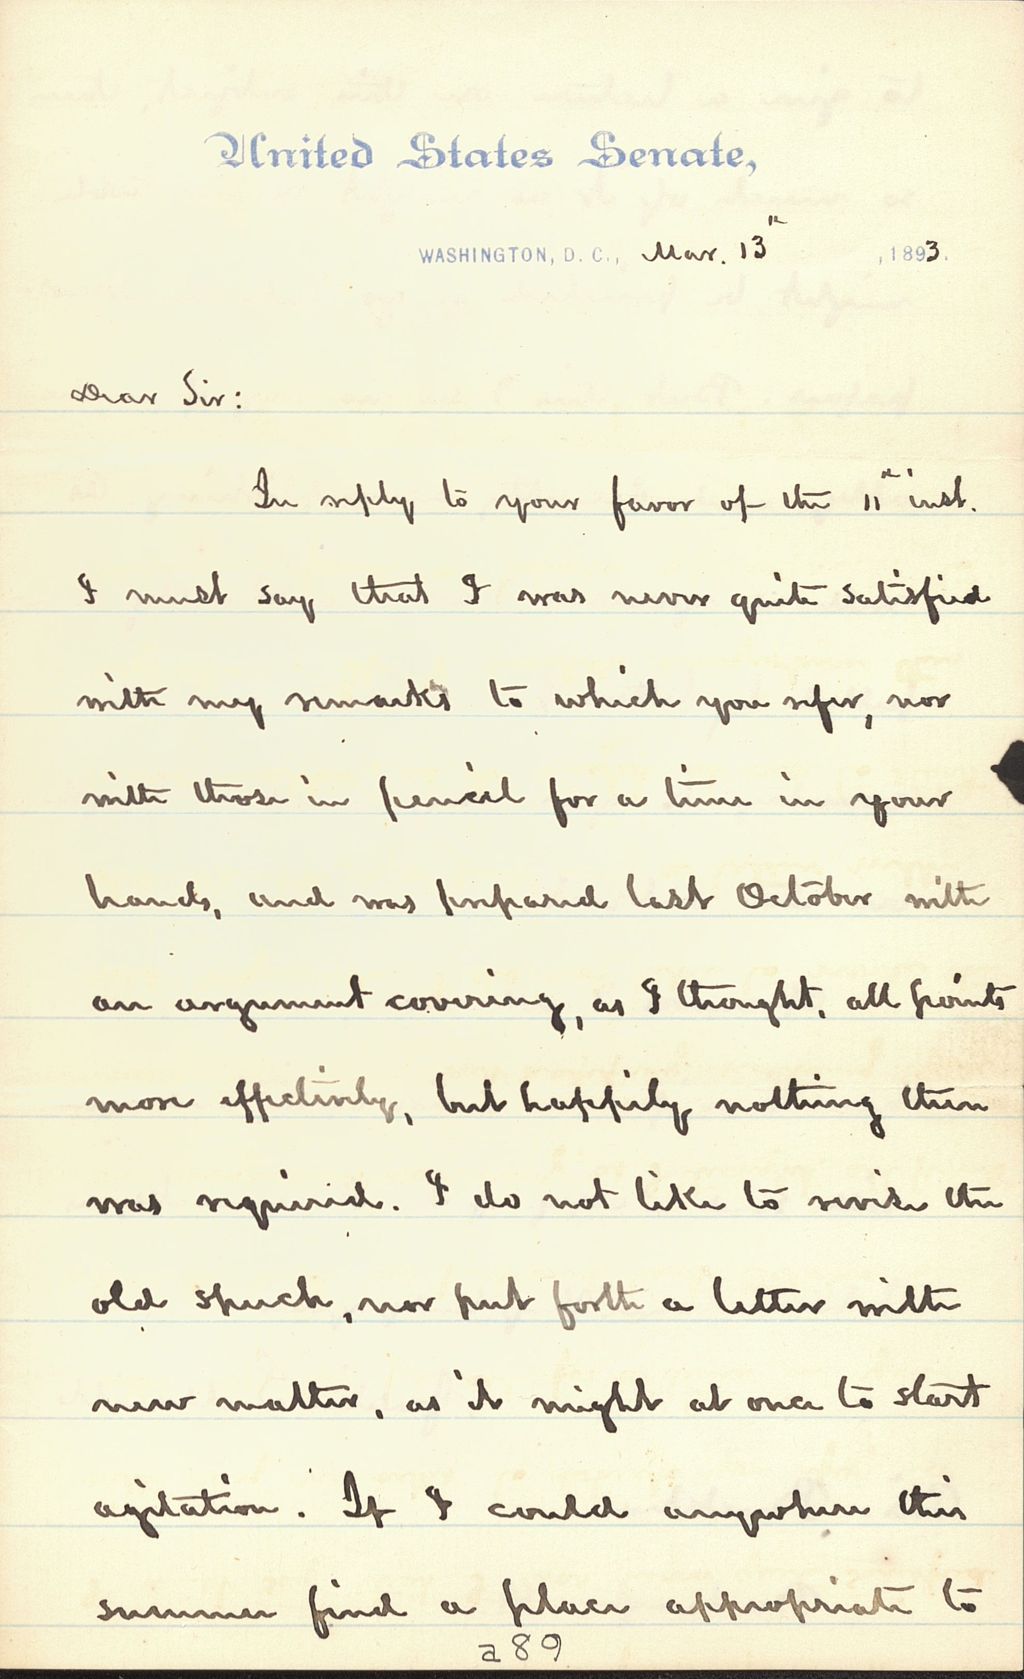 United States Senate,
WASHINGTON, D. C., Mar. 13", 1893.
Dear Sir:
In reply to your favor of the 11" inst.
I must say that I was never quite satisfied
with my remarks to which you refer, nor
with those in pencil for a time in your
hands, and was prepared last October with
an argument covering, as I thought, all points
more effectively, but happily nothing then
was required. I do not like to revise the
old speech, nor put forth a letter with
new matter, as it might at once to start
agitation. If I could anywhere this
summer find a place appropriate to
a89